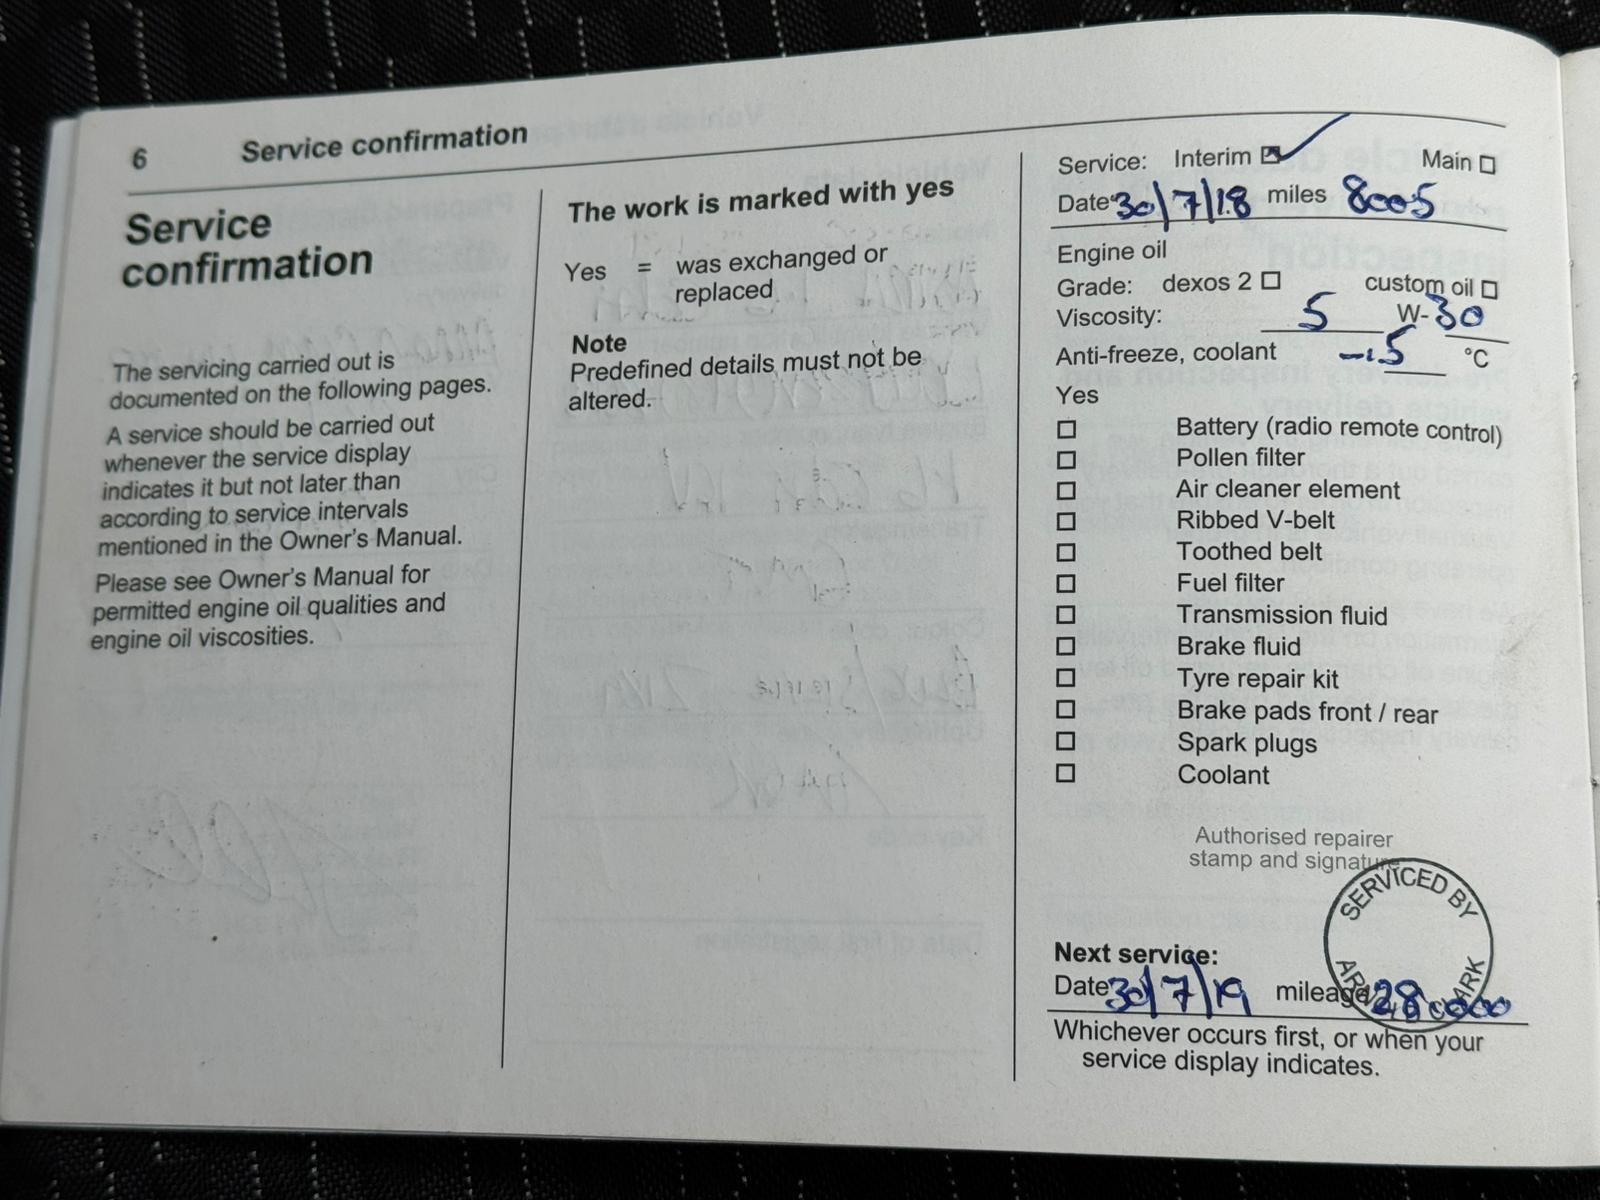 6 Service confirmation
Service
confirmation
The servicing carried out is
documented on the following pages.
A service should be carried out
whenever the service display
indicates it but not later than
according to service intervals
mentioned in the Owner's Manual.
Please see Owner's Manual for
permitted engine oil qualities and
engine oil viscosities.
The work is marked with yes
Yes = was exchanged or
replaced
Note
Predefined details must not be
altered.
Service: Interim Main
Date 30/7/18 miles 8005
Engine oil
Grade: dexos 2 custom oil
Viscosity: 5 W-30
Anti-freeze, coolant -15 °C
Yes
Battery (radio remote control)
Pollen filter
Air cleaner element
Ribbed V-belt
Toothed belt
Fuel filter
Transmission fluid
Brake fluid
Tyre repair kit
Brake pads front / rear
Spark plugs
Coolant
Authorised repairer
stamp and signature
SERVICED BY
ARNOLD CLARK
Next service:
Date 30/7/19 mileage 28000
Whichever occurs first, or when your
service display indicates.